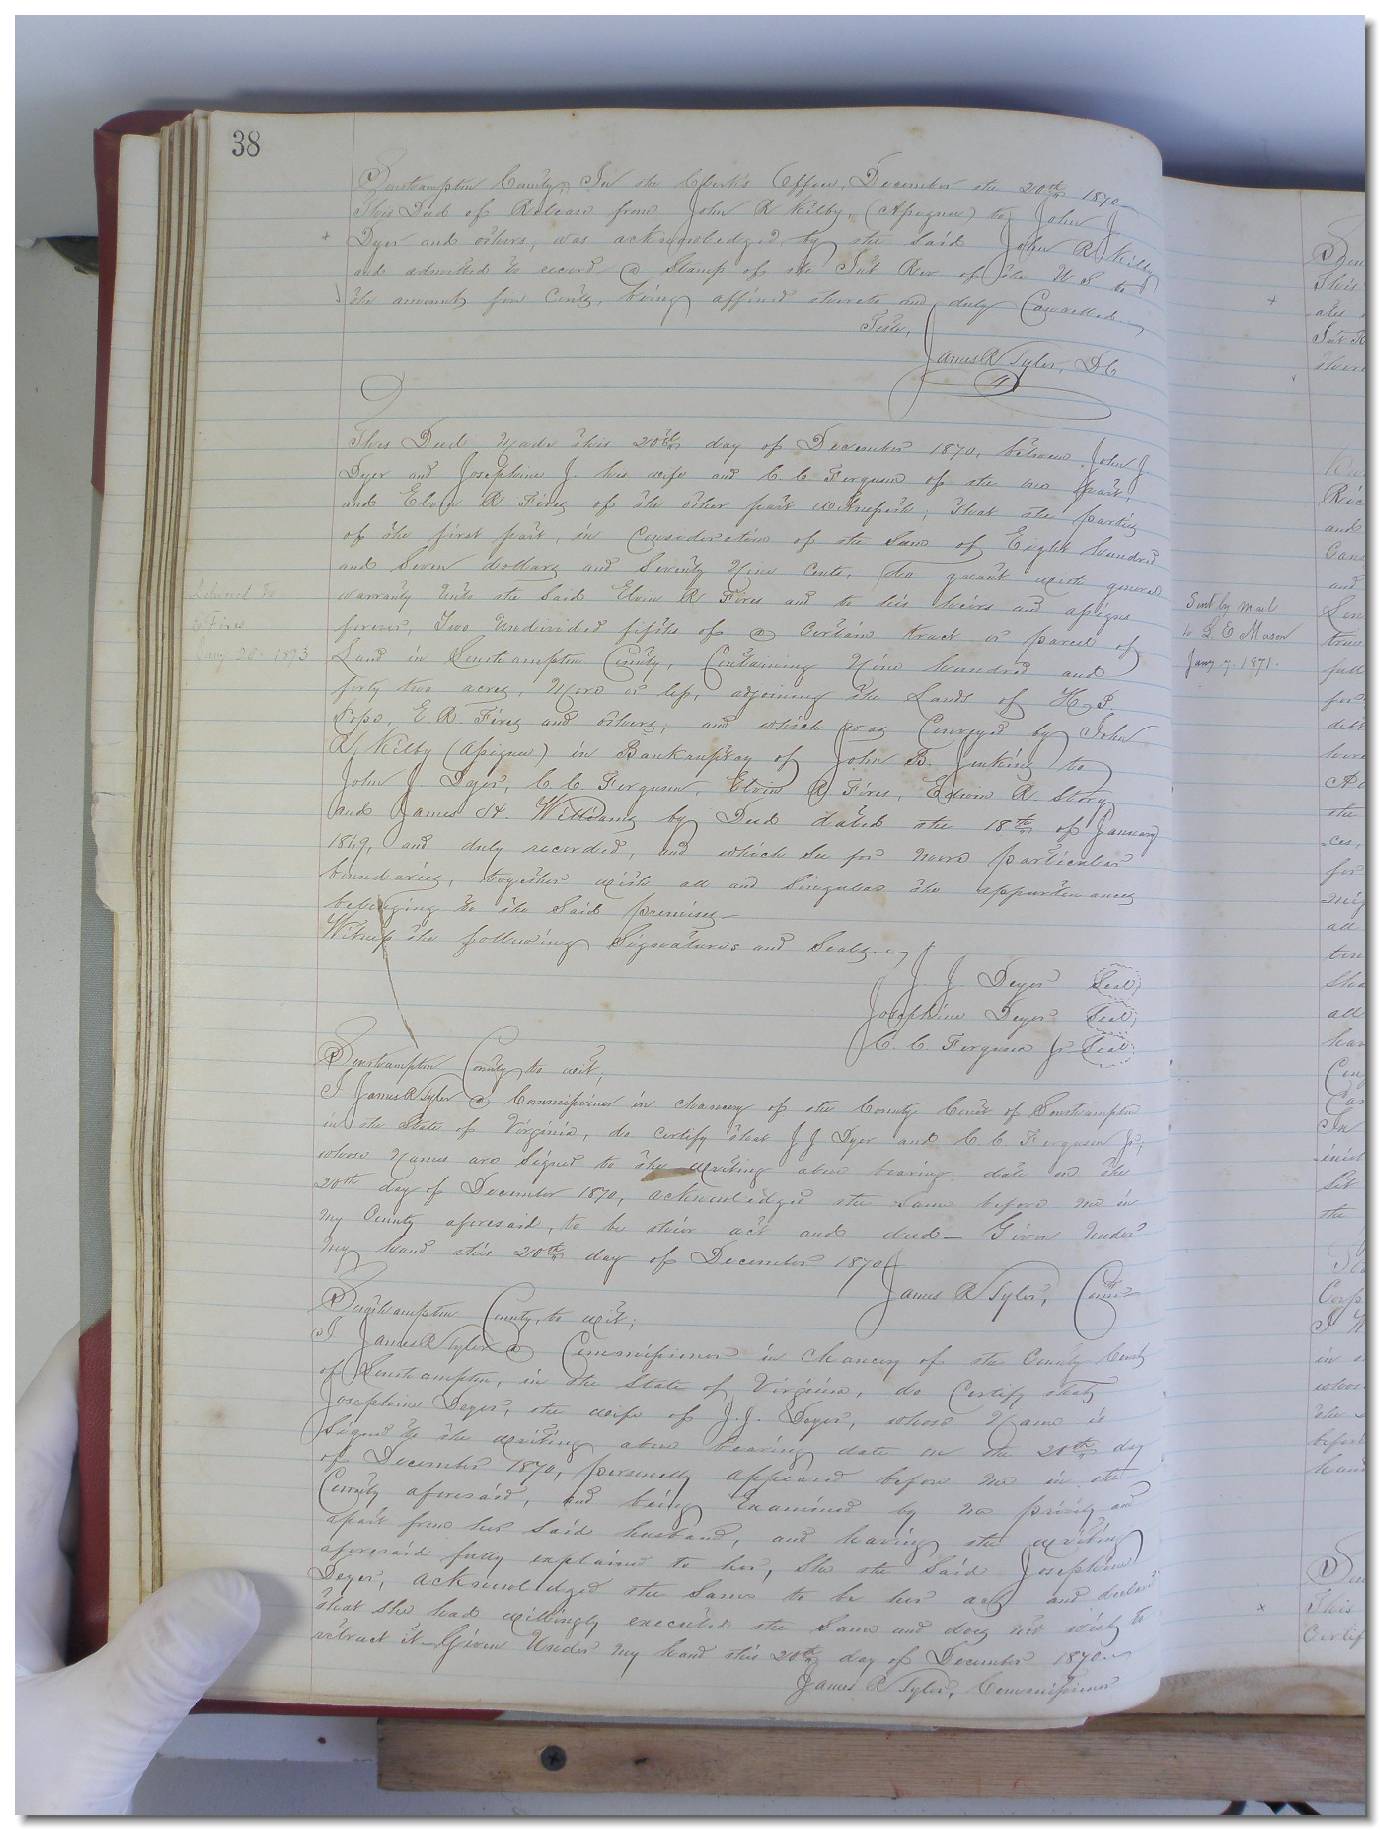 38
Southampton County, In the Clerk's Office, December the 20th 1870
This Deed of Release from John R Kilby, (Assignee) to John J.
Dyer and others, was acknowledged by the said John R. Kilby
and admitted to record a Stamp of the Int Rev of the U S to
the amount five Cents, being affixed thereto and duly Cancelled
Teste,
James R Tyler, DC
This Deed made this 20th day of December 1870, between John J.
Dyer and Josephine J. his wife and C. C Ferguson of the one part,
and Elvin R Fires of the other part witnesseth; that the parties
of the first part, in Consideration of the Sum of Eight hundred
and Seven dollars and Seventy Nine Cents, do grant with general
warranty Unto the Said Elvin R Fires and to his heirs and assigns
forever, Two Undivided fifths of a Certain tract or parcel of
Land in Southampton County, Containing Nine hundred and
forty two acres, More or less, adjoining the Lands of H. P.
Pope, E R. Fires and others; and which was Conveyed by John
R. Kilby (Assignee) in Bankruptcy of John B. Jenkins to
John J. Dyer, C. C. Ferguson, Elvin R Fires, Edwin R Story
and James H. Williams by Deed dated the 18th of January
1869, and duly recorded, and which See for More particular
boundaries, together with all and Singular the appurtenances
belonging to the Said premises
Witness the following Signatures and Seals
J J Dyer Seal
Josephine Dyer Seal
C. C. Ferguson Jr Seal
Southampton County, to wit;
I James R Tyler a Commissioner in chancery of the County Court of Southampton
in the State of Virginia, do certify that J J Dyer and C C Ferguson Jr,
whose Names are Signed to the writing above bearing date on the
20th day of December 1870, acknowledged the same before me in
my County aforesaid, to be their act and deed — Given Under
my hand this 20th day of December 1870
James R Tyler, Comr
Southampton County, to wit;
I James R Tyler a Commissioner in Chancery of the County Court
of Southampton, in the State of Virginia, do Certify that
Josephine Dyer, the wife of J. J. Dyer, whose Name is
Signed to the writing above bearing date on the 20th day
of December 1870, personally appeared before me in the
County aforesaid, and being examined by me privily and
apart from her Said husband, and having the writing
aforesaid fully explained to her, She the Said Josephine
Dyer, acknowledged the Same to be her act and declared
that She had willingly executed the Same and does not wish to
retract it — Given Under My hand this 20th day of December 1870
James R Tyler, Commissioner
Fires
Jany 20 1873
Sent by mail
to L E Mason
Jany 7. 1871.